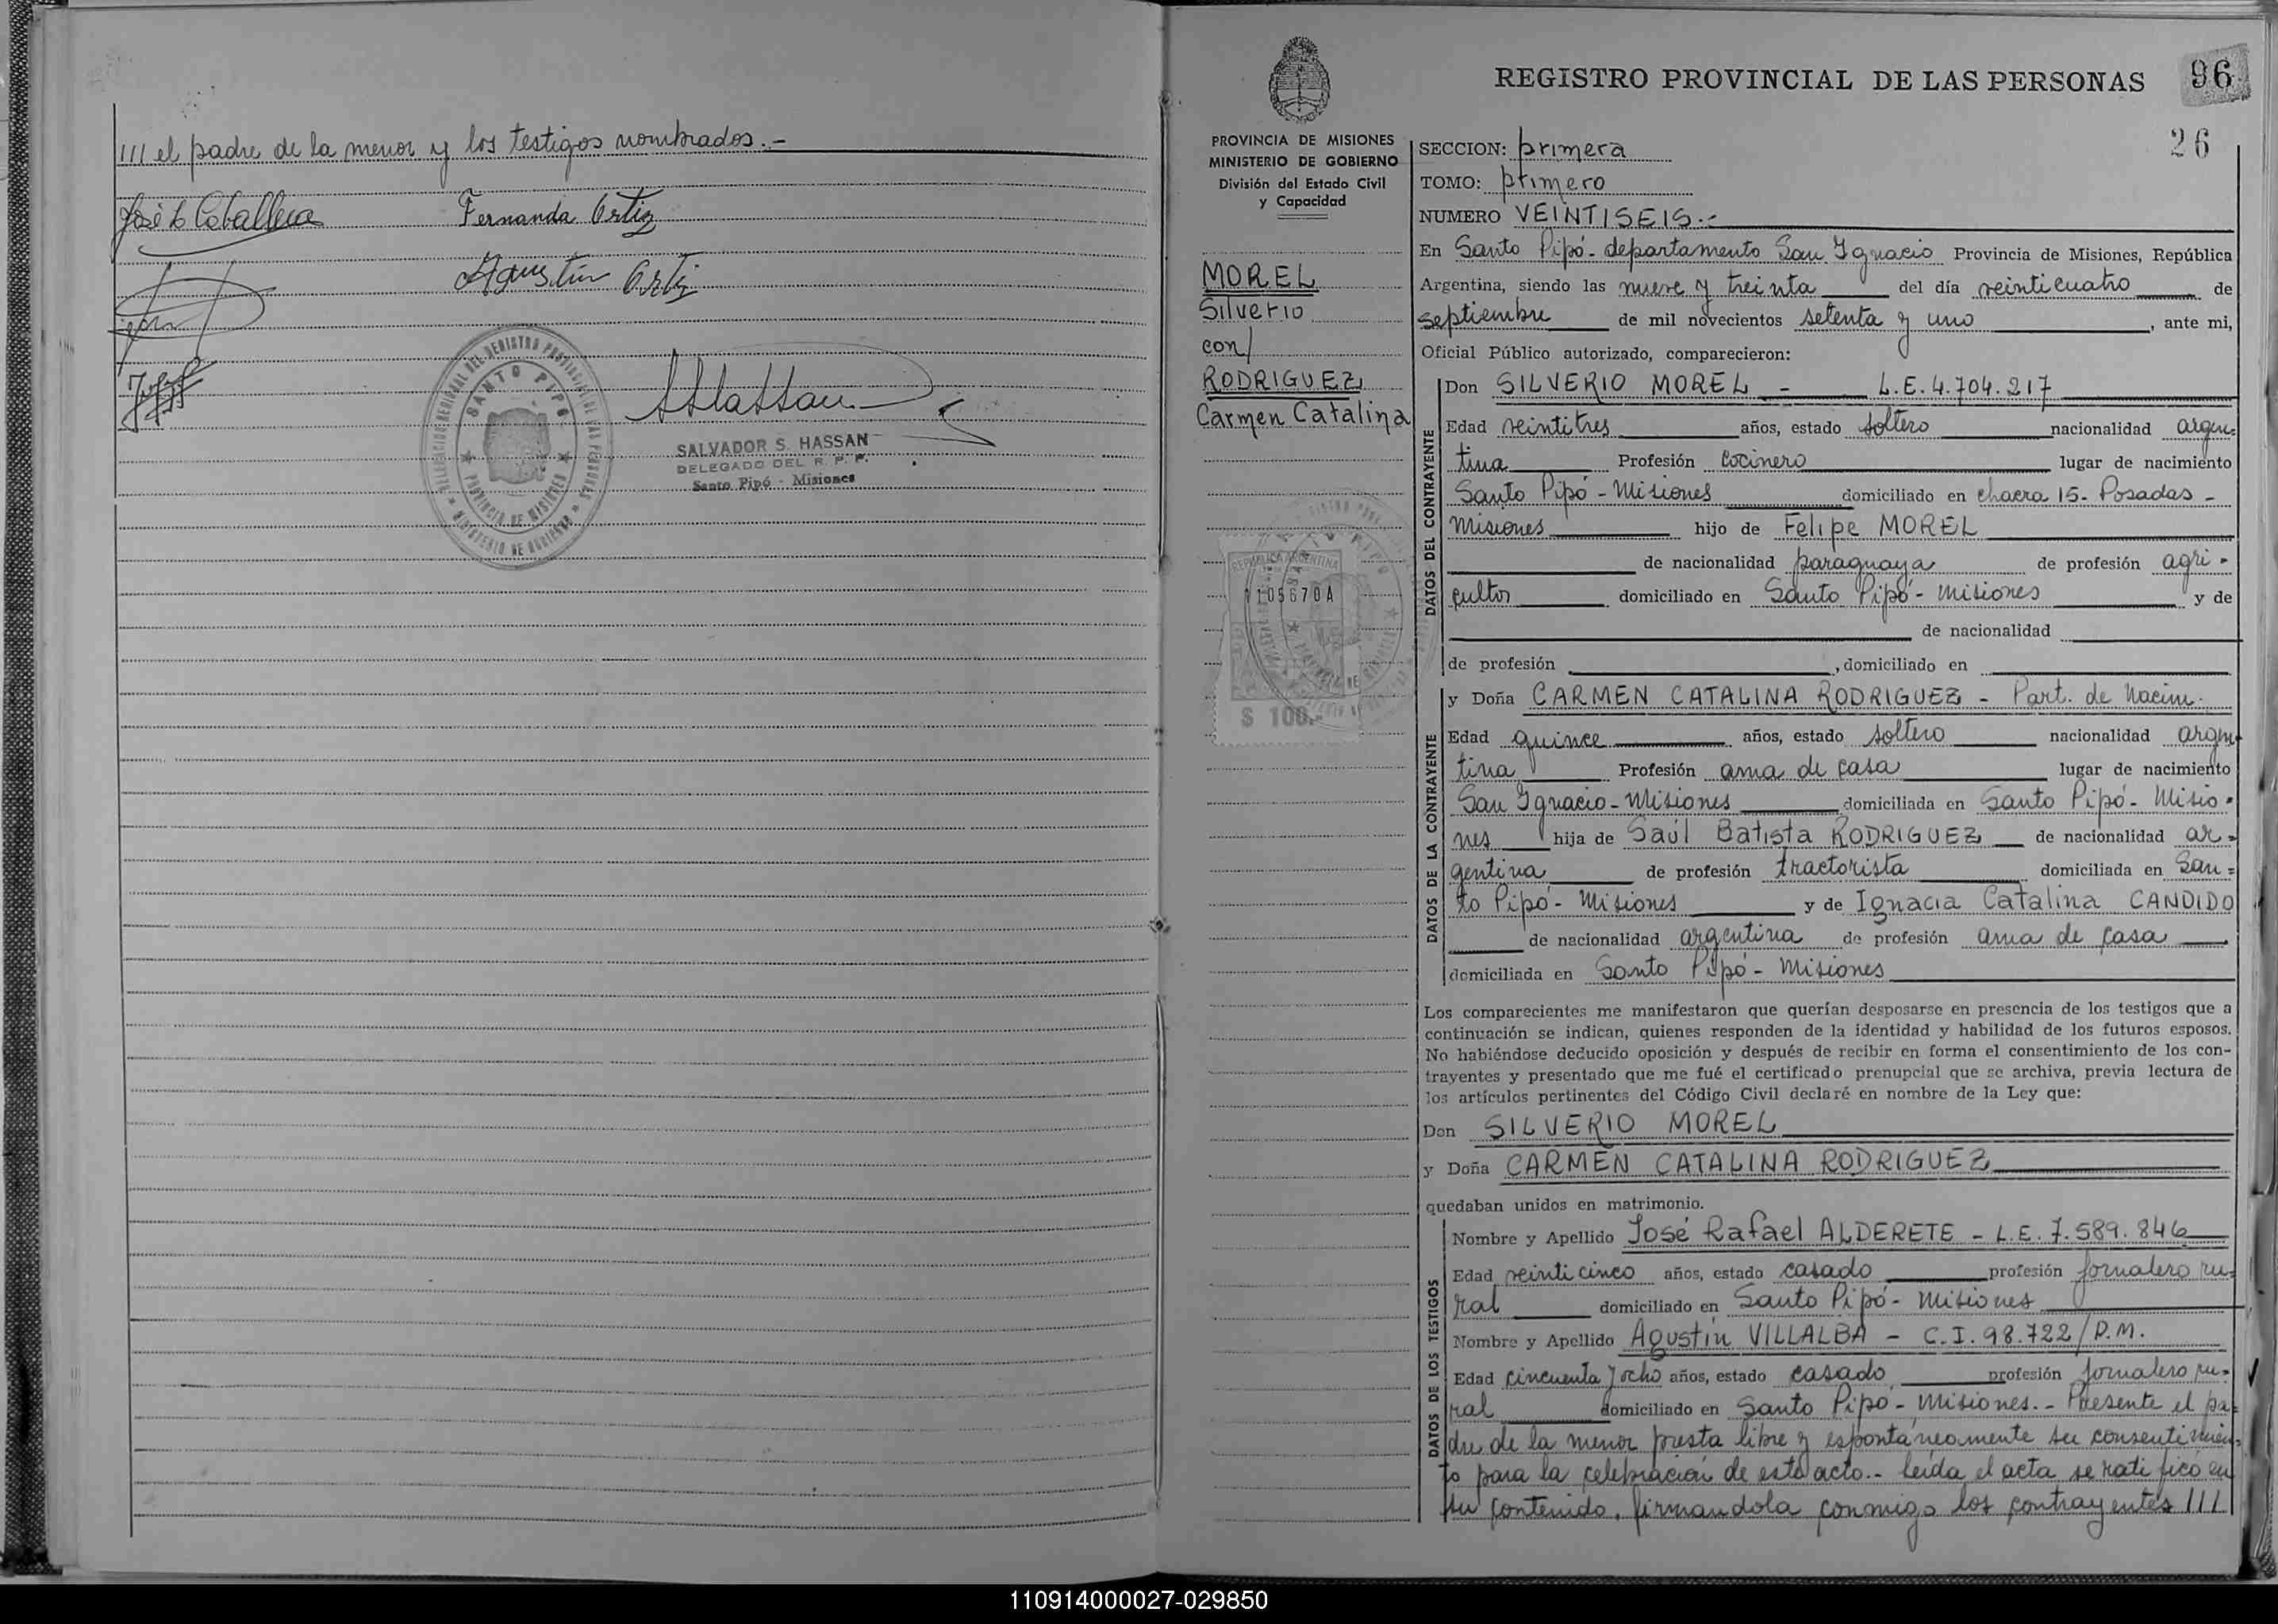 /// el padre de la menor y los testigos nombrados.-
José L Caballero
Fernanda Ortiz
Agustín Ortiz
SANTO PIPO
PROVINCIA DE MISIONES
SALVADOR S. HASSAN
DELEGADO DEL R. P. P.
Santo Pipó - Misiones
REGISTRO PROVINCIAL DE LAS PERSONAS
96
26
PROVINCIA DE MISIONES
MINISTERIO DE GOBIERNO
División del Estado Civil
y Capacidad
MOREL
Silverio
con/
RODRIGUEZ
Carmen Catalina
REPUBLICA ARGENTINA
105670A
$ 100.-
SECCION: primera
TOMO: primero
NUMERO VEINTISEIS.-
En Santo Pipó - departamento San Ignacio Provincia de Misiones, República
Argentina, siendo las nueve y treinta del día veinticuatro de
septiembre de mil novecientos setenta y uno , ante mi,
Oficial Público autorizado, comparecieron:
DATOS DEL CONTRAYENTE
Don SILVERIO MOREL - L.E. 4.704.217
Edad veintitres años, estado soltero nacionalidad argen-
tina Profesión cocinero lugar de nacimiento
Santo Pipó - Misiones domiciliado en chacra 15- Posadas -
Misiones hijo de Felipe MOREL
de nacionalidad paraguaya de profesión agri-
cultor domiciliado en Santo Pipó - Misiones y de
de nacionalidad
de profesión , domiciliado en
DATOS DE LA CONTRAYENTE
y Doña CARMEN CATALINA RODRIGUEZ - Part. de Nacim.
Edad quince años, estado soltero nacionalidad argen-
tina Profesión ama de casa lugar de nacimiento
San Ignacio - Misiones domiciliada en Santo Pipó - Misio-
nes hija de Saúl Batista RODRIGUEZ de nacionalidad ar-
gentina de profesión tractorista domiciliada en San-
to Pipó - Misiones y de Ignacia Catalina CANDIDO
de nacionalidad argentina de profesión ama de casa
domiciliada en Santo Pipó - Misiones
Los comparecientes me manifestaron que querían desposarse en presencia de los testigos que a
continuación se indican, quienes responden de la identidad y habilidad de los futuros esposos.
No habiéndose deducido oposición y después de recibir en forma el consentimiento de los con-
trayentes y presentado que me fué el certificado prenupcial que se archiva, previa lectura de
los artículos pertinentes del Código Civil declaré en nombre de la Ley que:
Don SILVERIO MOREL
y Doña CARMEN CATALINA RODRIGUEZ
quedaban unidos en matrimonio.
DATOS DE LOS TESTIGOS
Nombre y Apellido José Rafael ALDERETE - L.E. 7.589.846
Edad veinticinco años, estado casado profesión jornalero ru-
ral domiciliado en Santo Pipó - Misiones
Nombre y Apellido Agustín VILLALBA - C.I. 98.722/P.M.
Edad cincuenta y ocho años, estado casado profesión jornalero ru-
ral domiciliado en Santo Pipó - Misiones.- Presente el pa-
dre de la menor presta libre y espontáneamente su consentimien-
to para la celebración de este acto.- Leída el acta se ratificó en
su contenido, firmandola conmigo los contrayentes ///
110914000027-029850